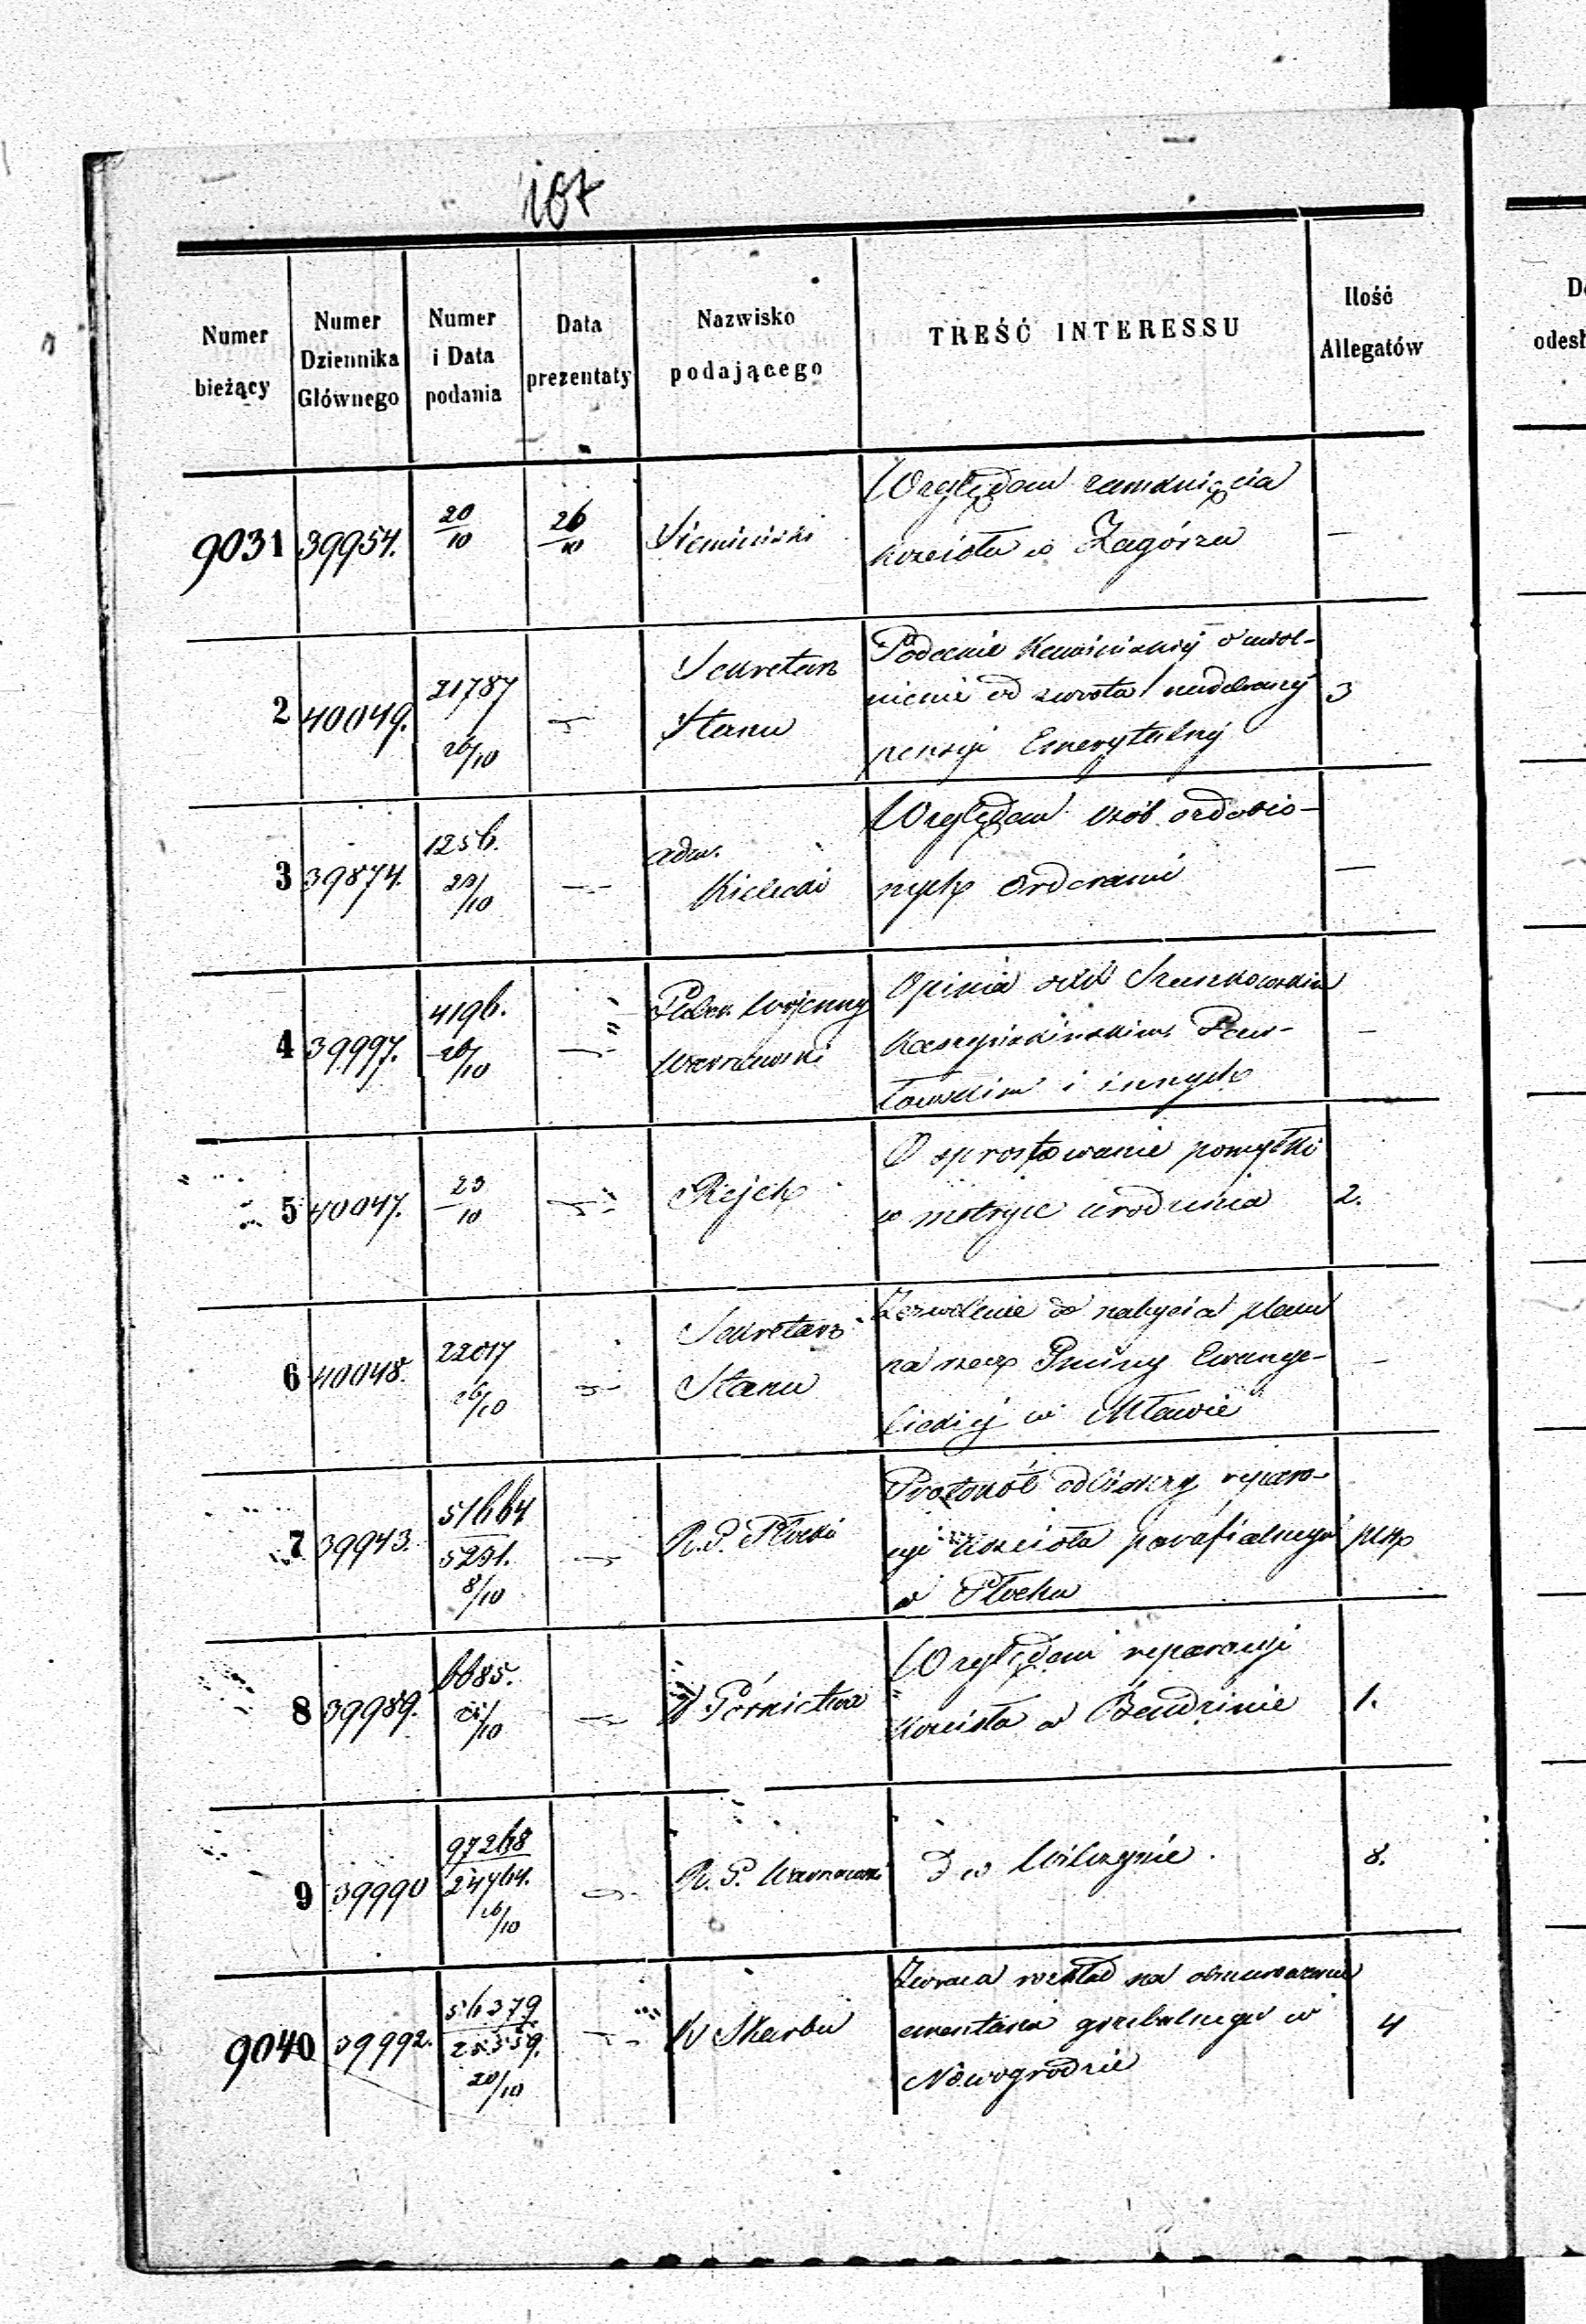 107
Numer bieżący
Numer Dziennika Głównego
Numer i Data podania
Data prezentaty
Nazwisko podającego
TREŚĆ INTERESSU
Ilość Allegatów
9031 39954. 20/10 26/10 Siemieński
Względem zamknięcia
kościoła w Zagórzu
—
2 40049. 21787 26/10 —
Sekretarz
Stanu
Podanie o uwol-
nienie od zwrotu nadebranej
pensyi Emerytalnej
3
3 39874. 1256. 20/10 —
adm.
Kielecki
Względem osób ozdobio-
nych orderami
—
4 39997. 4196. 26/10 —
Wojenny
Warszawski
Opinia
i innych
—
5 40047. 23/10 —
Rejch
O sprostowanie pomyłki
w metryce urodzenia
2.
6 40048. 22017 26/10 —
Sekretarz
Stanu
Zezwolenie do nabycia placu
na rzecz Gminy Ewange-
lickiej w Mławie
—
7 39943. 51664 5291. 8/10 —
R. G. Płocki
Protokół odbiorczy repara-
cyi kościoła parafialnego
w Płocku
8 39989. 6685. 21/10 —
W Górnictwa
Względem reparacyi
kościoła w Bendzinie
1.
9 39990 97268 24764. 16/10 —
R. G. Warszawski
D w Wilczynie.
8.
9040 39992. 56379 25359. 20/10 —
W Skarbu
Zwraca rozkład na obmurowanie
cmentarza grzebalnego w
Nowogrodzie
4
D
odesł